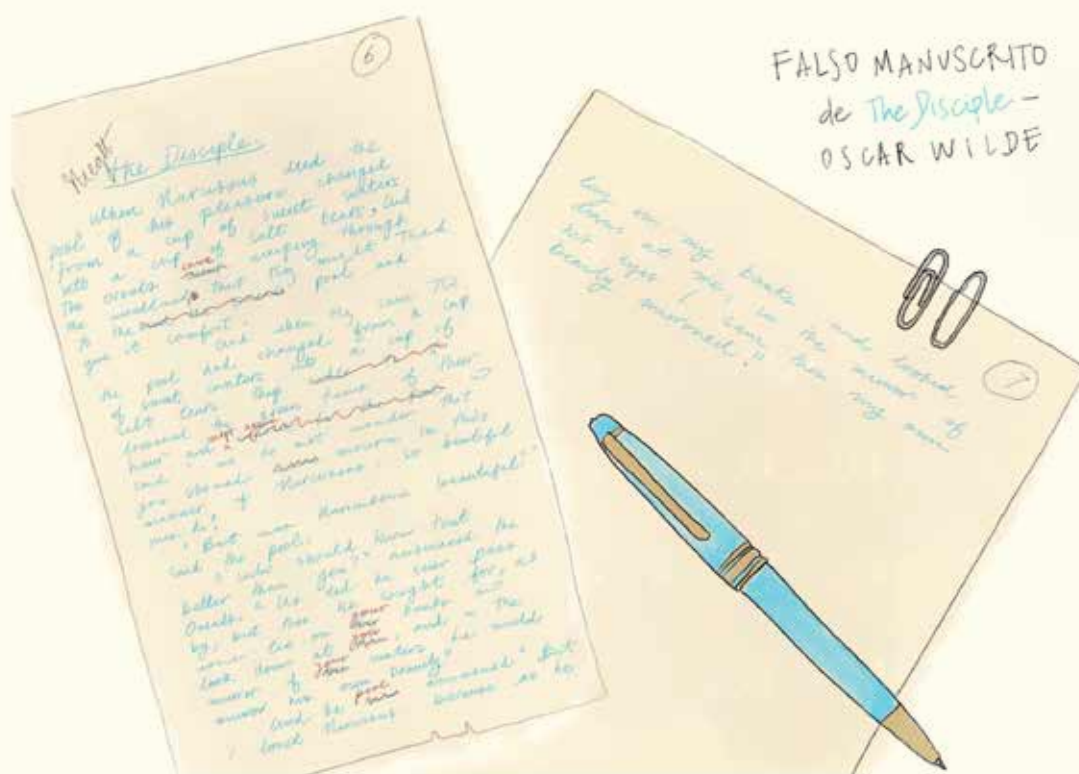 6
The Disciple
When Narcissus died the
pool of his pleasure changed
from a cup of sweet waters
into a cup of salt tears, and
the Oreads came weeping through
the woodland that they might
to the pool and
give it comfort.
And when they saw that
the pool had changed from a cup
of sweet waters into a cup of
salt tears they
loosened the green tresses of their
hair and
said, we do not wonder that
you should mourn in this
manner for Narcissus, so beautiful
was he."
"But was Narcissus beautiful?"
said the pool.
"who should know that
better than you?" answered the
Oreads. "Us did he ever pass
by, but you he sought for, and
would lie on your banks and
look down at you, and in the
mirror of your waters he would
mirror his own beauty."
And the pool answered "But
I loved Narcissus because as he
lay on my banks and looked
down at me, in the mirror of
his eyes I saw then my own
beauty mirrored."
7
FALSO MANUSCRITO
de The Disciple –
OSCAR WILDE